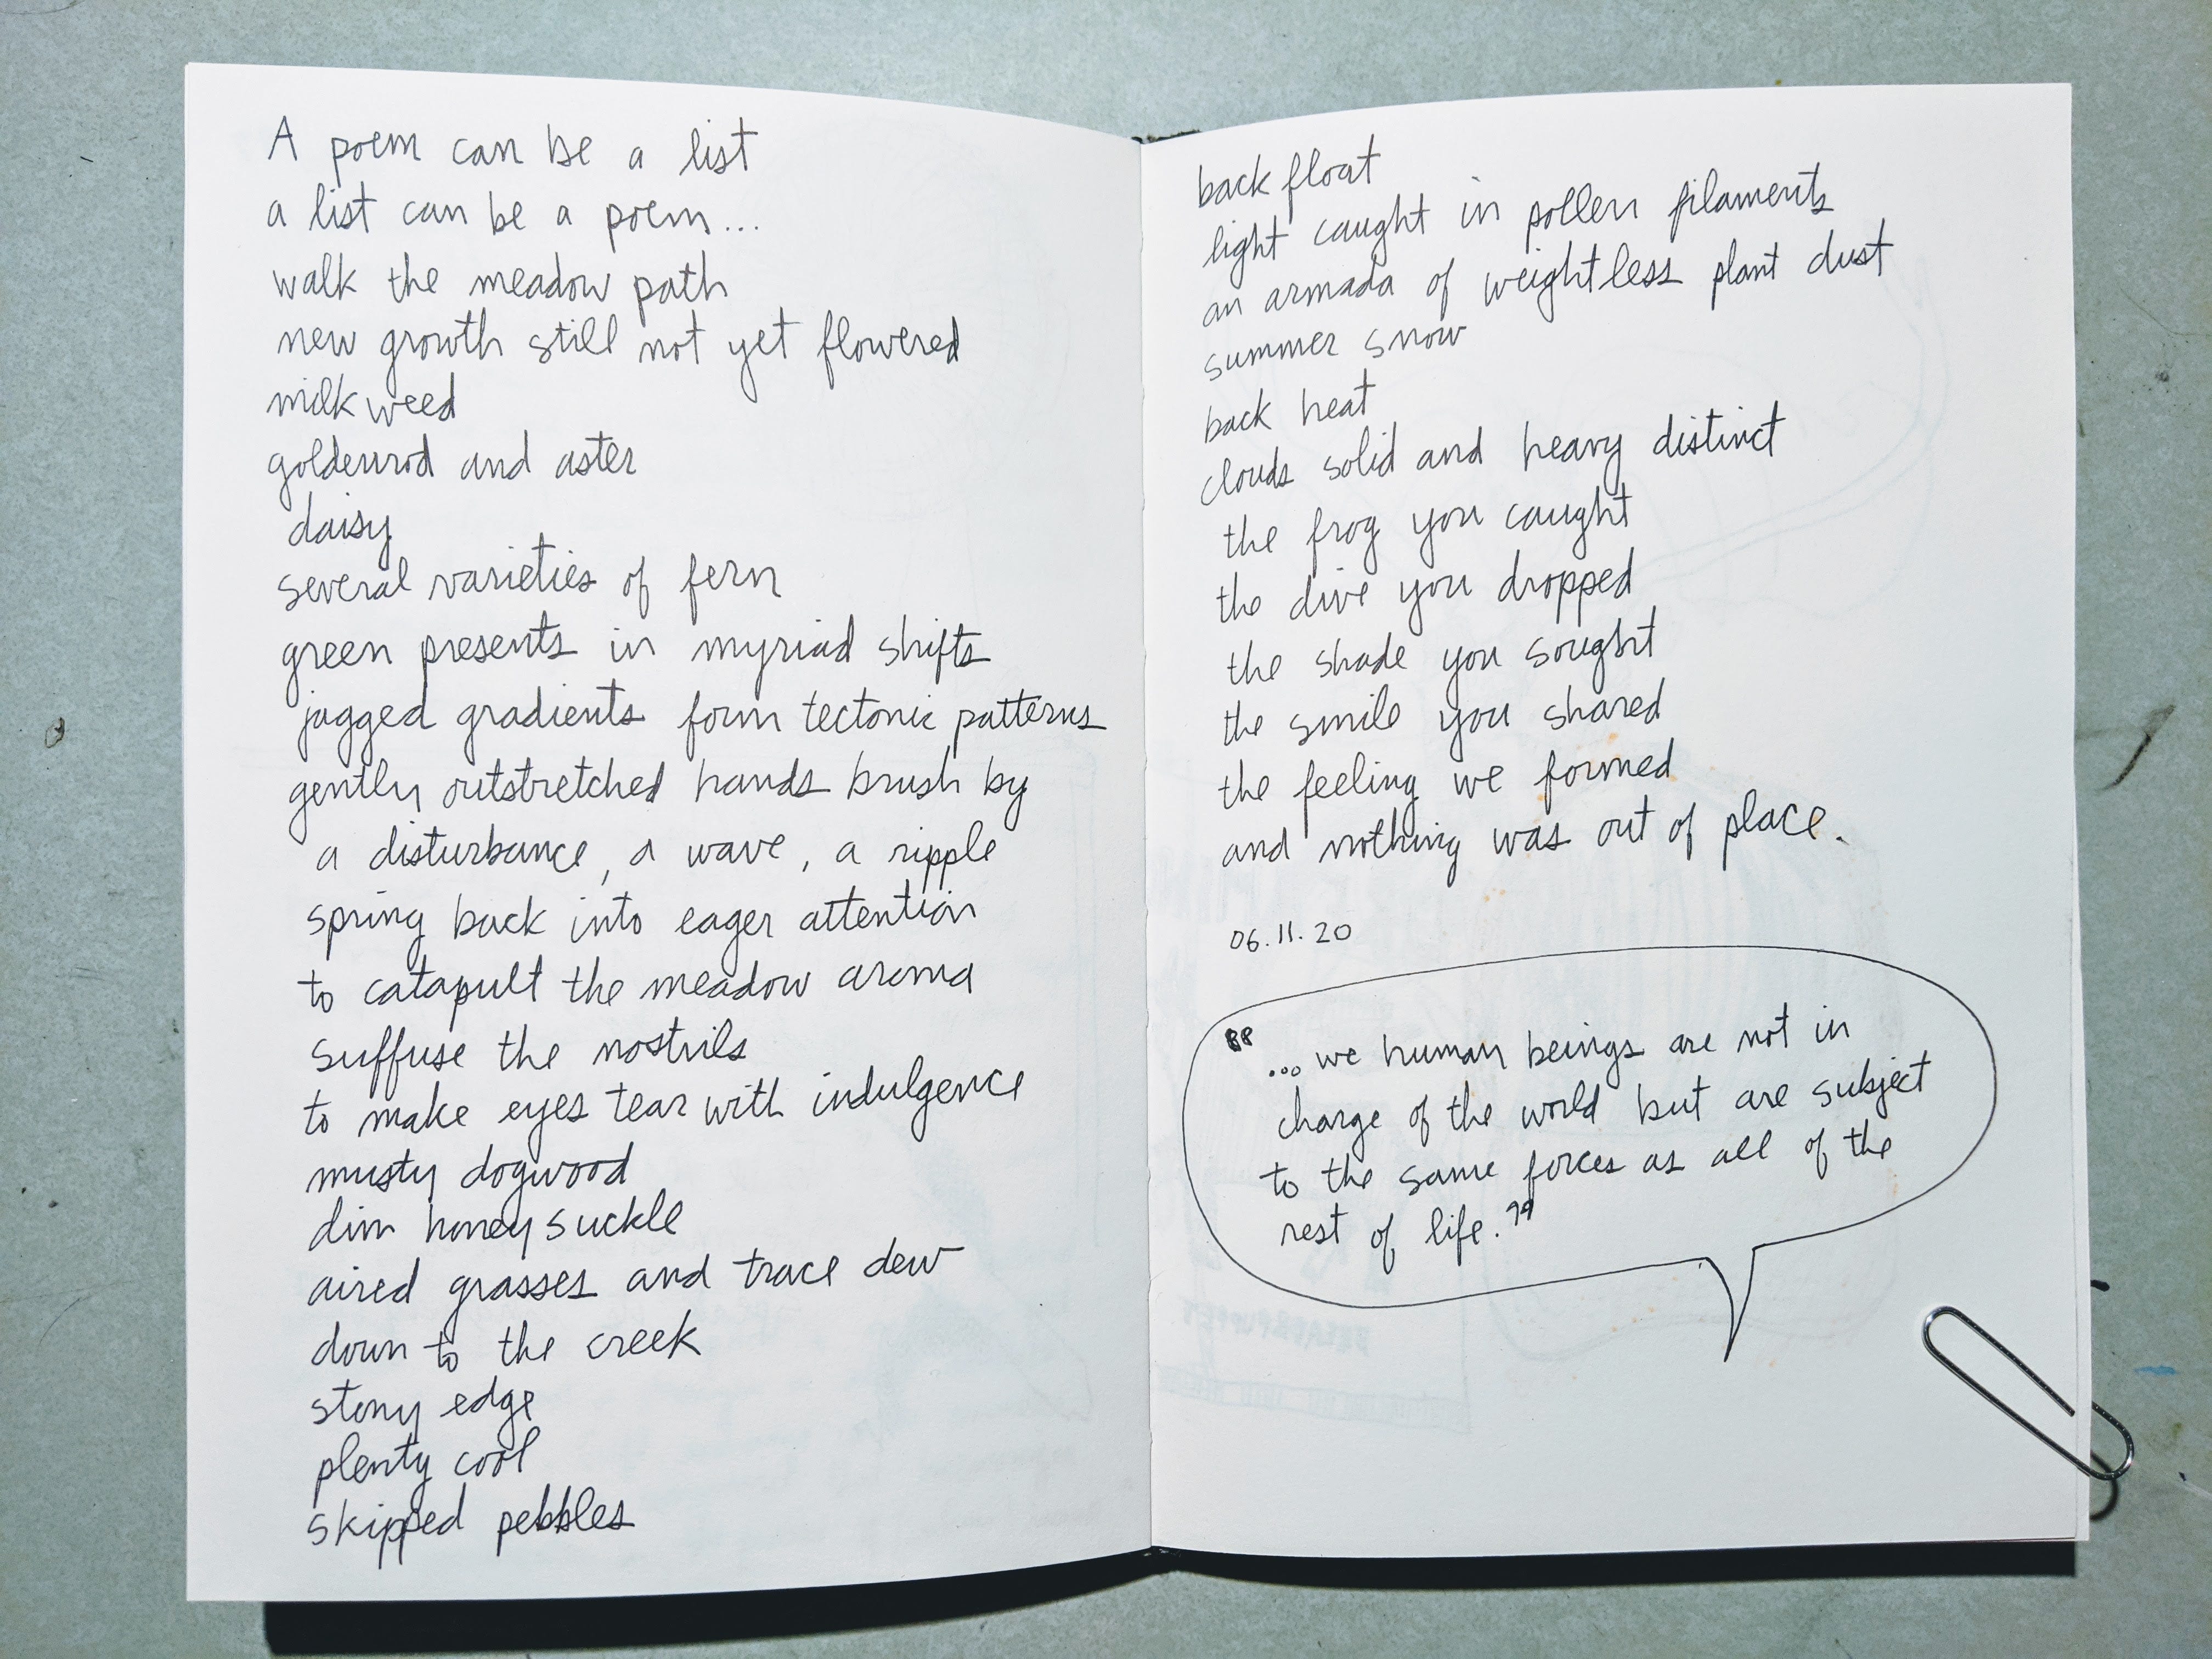 A poem can be a list
a list can be a poem...
walk the meadow path
new growth still not yet flowered
milkweed
goldenrod and aster
daisy
several varieties of fern
green presents in myriad shifts
jagged gradients form tectonic patterns
gently outstretched hands brush by
a disturbance, a wave, a ripple
spring back into eager attention
to catapult the meadow aroma
suffuse the nostrils
to make eyes tear with indulgence
musty dogwood
dim honeysuckle
aired grasses and trace dew
down to the creek
stony edge
plenty cool
skipped pebbles
back float
light caught in pollen filaments
an armada of weightless plant dust
summer snow
back heat
clouds solid and heavy distinct
the frog you caught
the dive you dropped
the shade you sought
the smile you shared
the feeling we formed
and nothing was out of place.
06.11.20
"...we human beings are not in
charge of the world but are subject
to the same forces as all of the
rest of life."